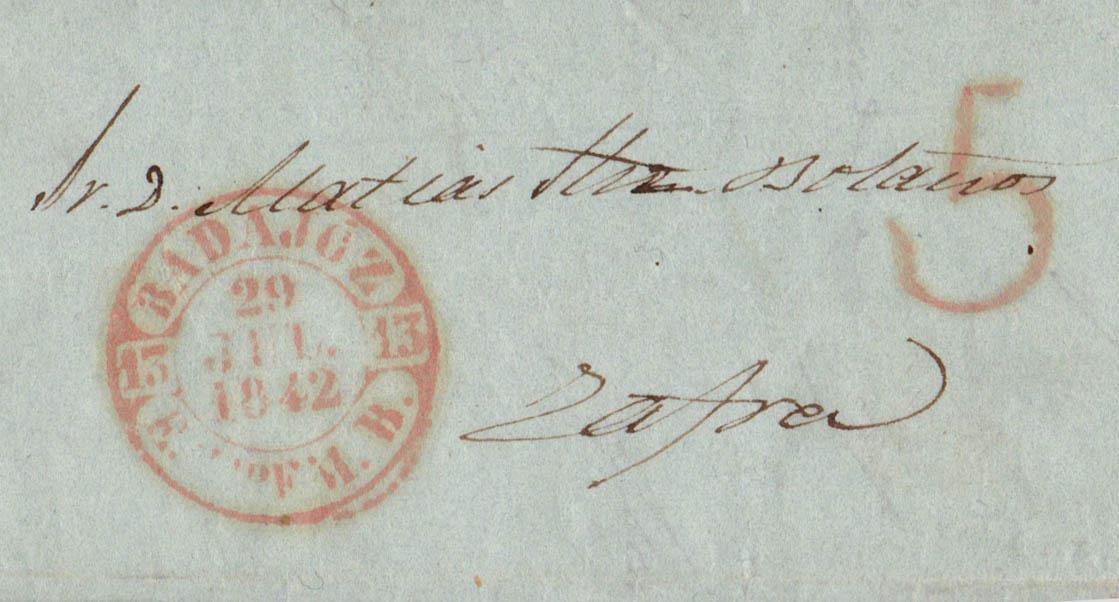 Sr. D. Matias Hrz Bolaños
5
BADAJOZ
29
JUL.
1842
15 15
E.
M. B.
Zafra